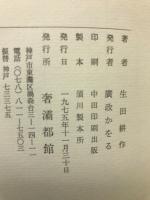 著者　生田耕作
発行者　廣政かをる
印刷　中田印刷出版
製本　須川製本所
発行日　一九七五年十一月三十日
発行所　奢灞都館
神戸市東灘区渦森台三－一四－一一
電話（〇七八）八一一－七五〇三
振替　神戸　七三三七五